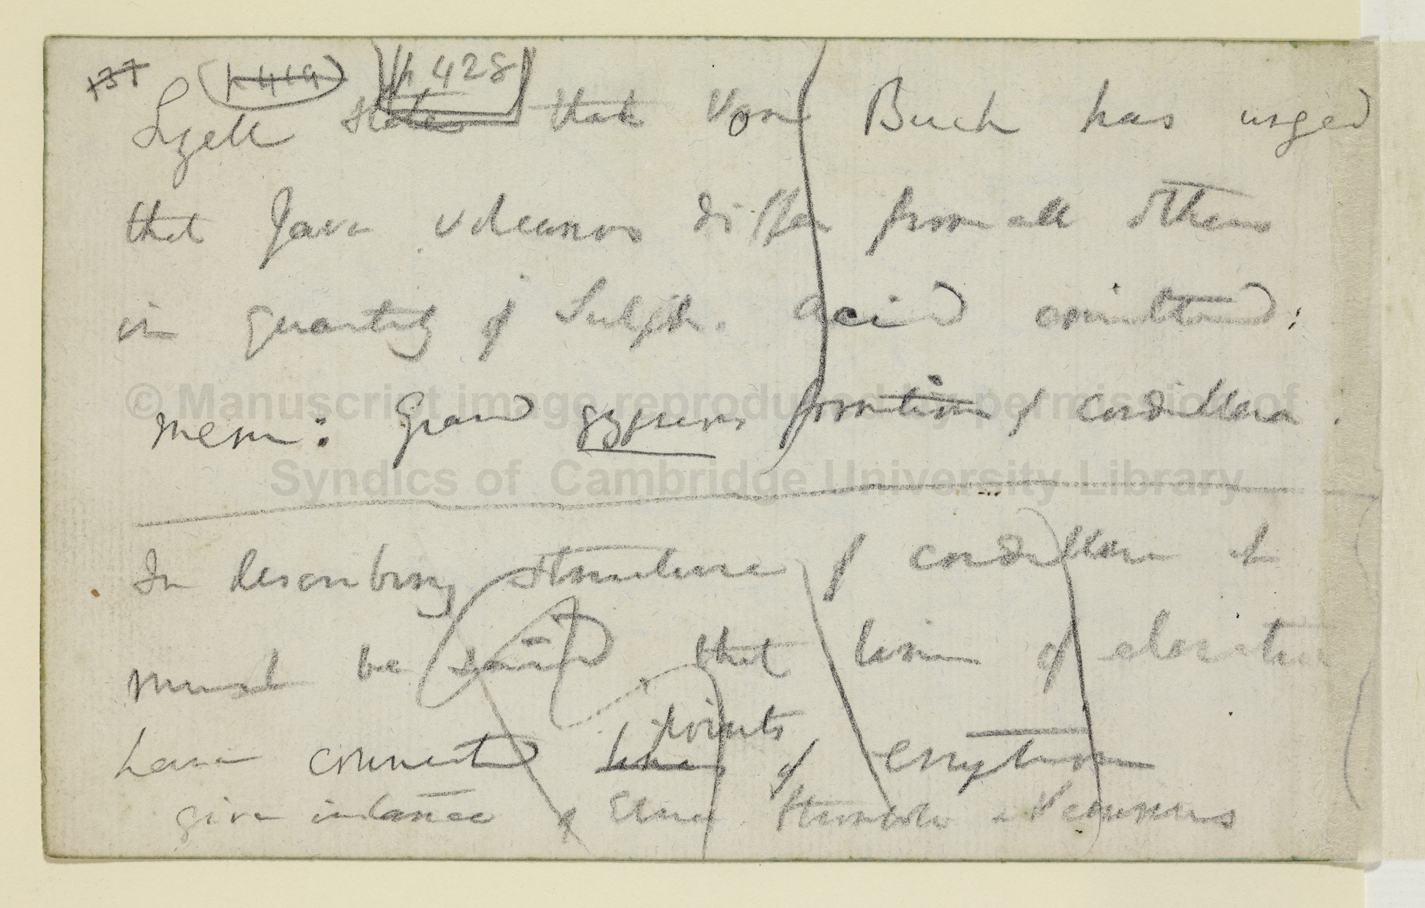 137 (p 419) p 428
Lyell states that Von Buch has urged
that Java volcanos differ from all others
in quantity of Sulph. acid emitted:
© Manuscript image reproduced by permission of
mem: Grand gypseous formation of Cordillera.
Syndics of Cambridge University Library
In describing structure of Cordillera it
must be said that lines of elevation
have connected lines points of eruption
give instance of Etna Stromboli & Vesuvius